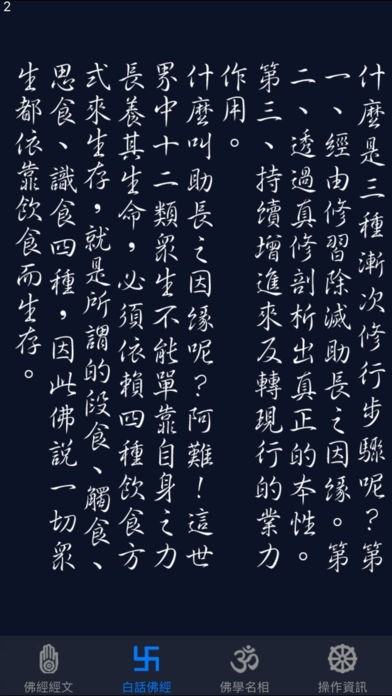 2
什麼是三種漸次修行步驟呢?第
一、經由修習除滅助長之因緣。第
二、透過真修剖析出真正的本性。
第三、持續增進來反轉現行的業力
作用。
什麼叫助長之因緣呢?阿難!這世
界中十二類眾生不能單靠自身之力
長養其生命,必須依賴四種飲食方
式來生存,就是所謂的段食、觸食、
思食、識食四種,因此佛說一切眾
生都依靠飲食而生存。
佛經經文
白話佛經
佛學名相
操作資訊